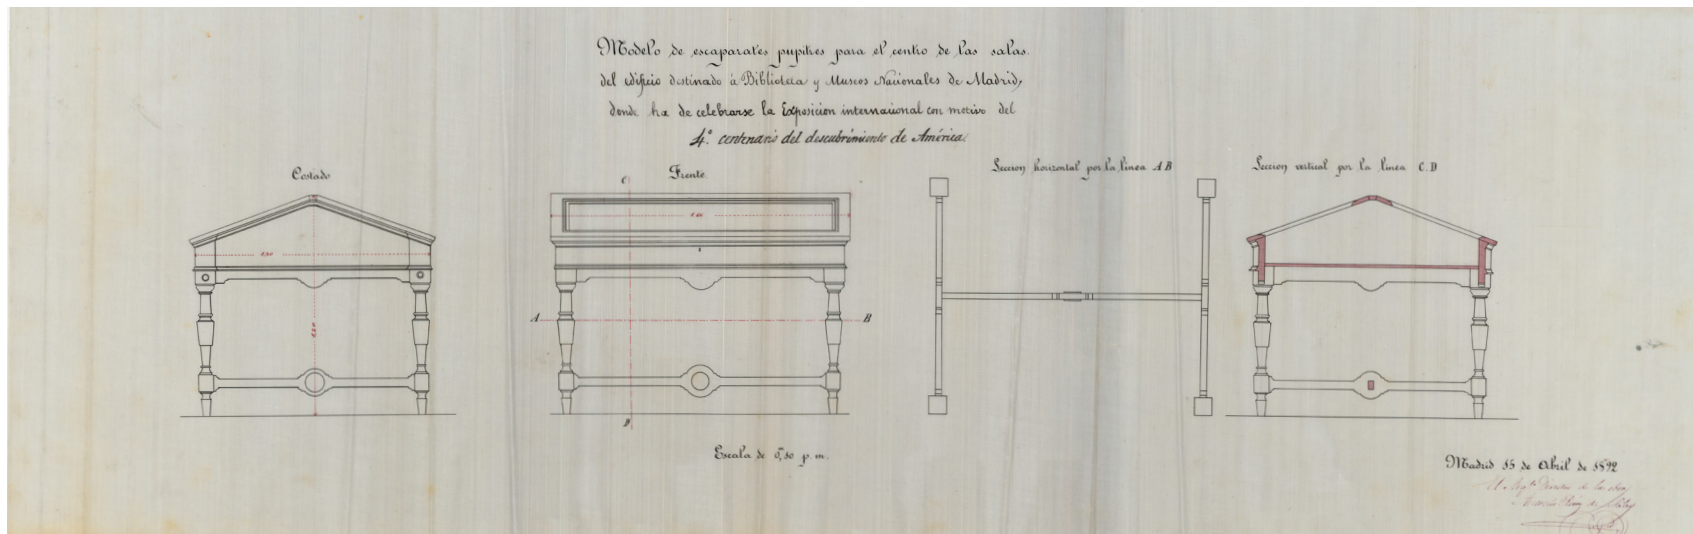 Modelo de escaparates pupitres para el centro de las salas
del edificio destinado à Biblioteca y Museos Nacionales de Madrid,
donde ha de celebrarse la Exposicion internacional con motivo del
4.º centenario del descubrimiento de América.
Costado
Frente
Seccion horizontal por la linea A B
Seccion vertical por la linea C.D
C
A
B
D
Escala de 0,m10 p m.
Madrid 15 de Abril de 1892
El Arqto Director de las obras